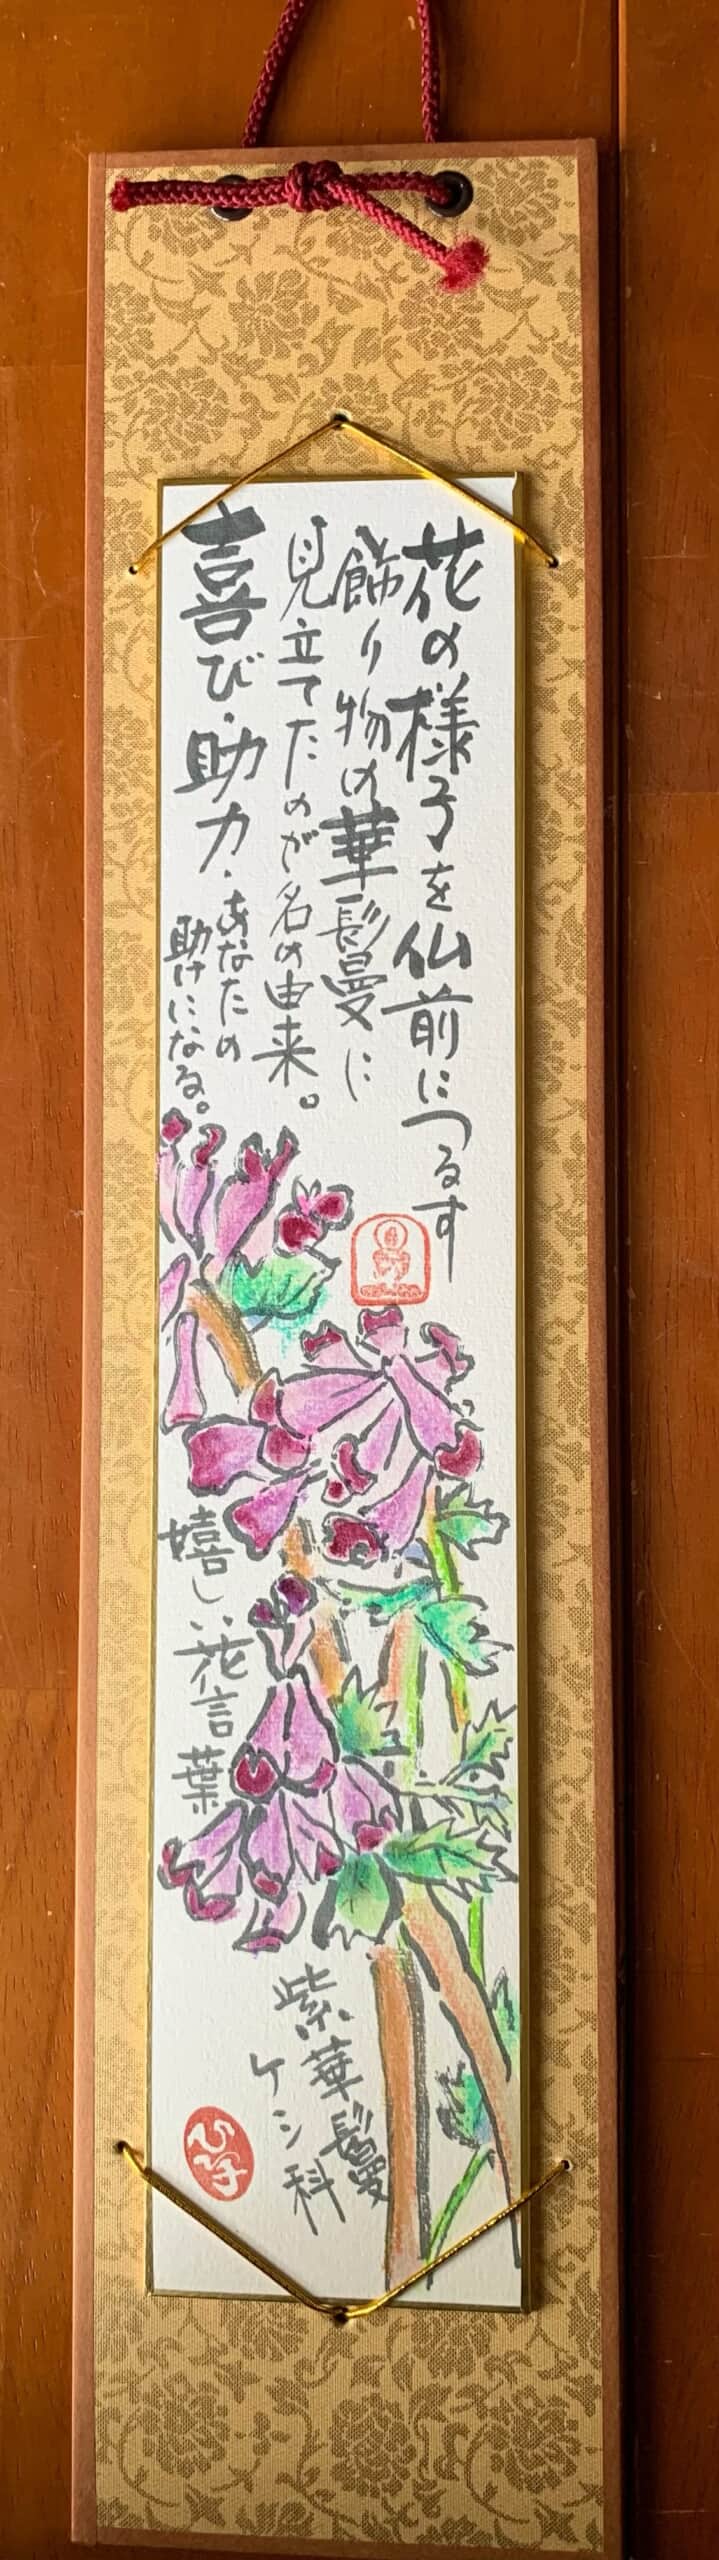 花の様子を仏前につるす
飾り物の華鬘に
見立てたのが名の由来。
喜び・助力・あなたの
助けになる。
嬉しい花言葉
紫華鬘
ケシ科